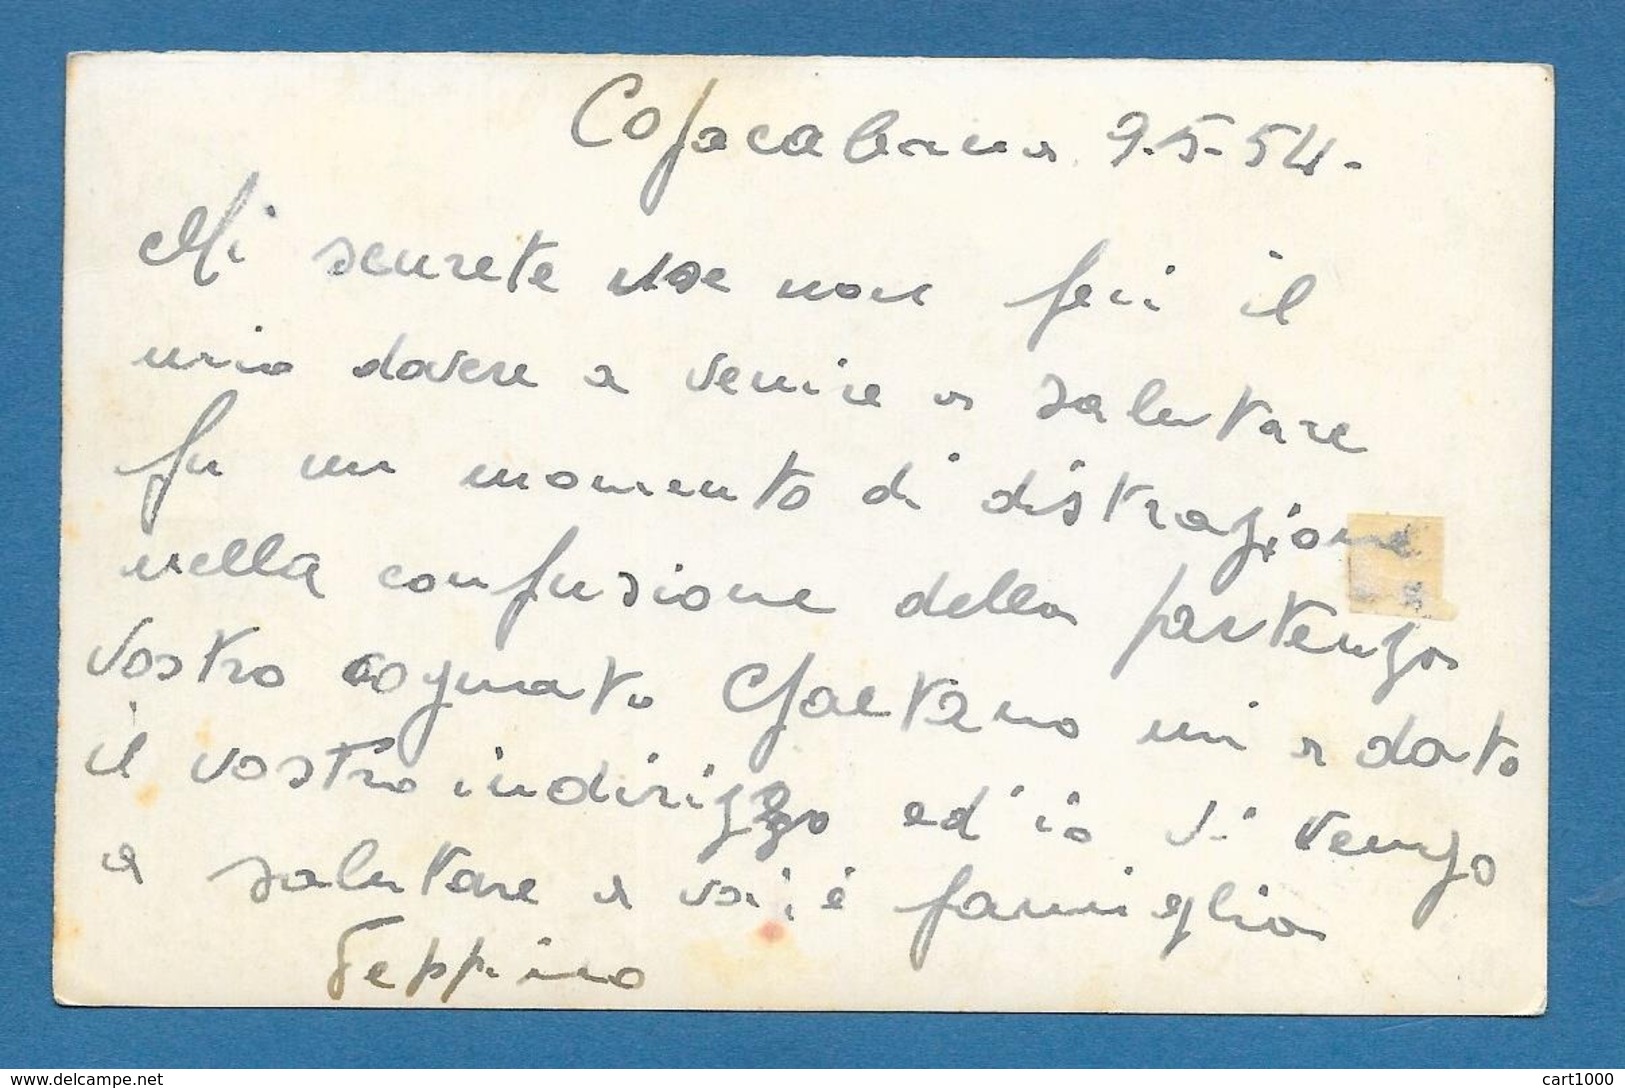 Copacabana 9-5-54-
Mi scusete se non feci il
mio dovere a venire a salutare
fu un momento di distrazione
nella confusione della partenza
Vostro cognato Gaetano mi a dato
il vostro indirizzo ed io vi vengo
a salutare a voi e famiglia
Peppino
www.delcampe.net
cart1000